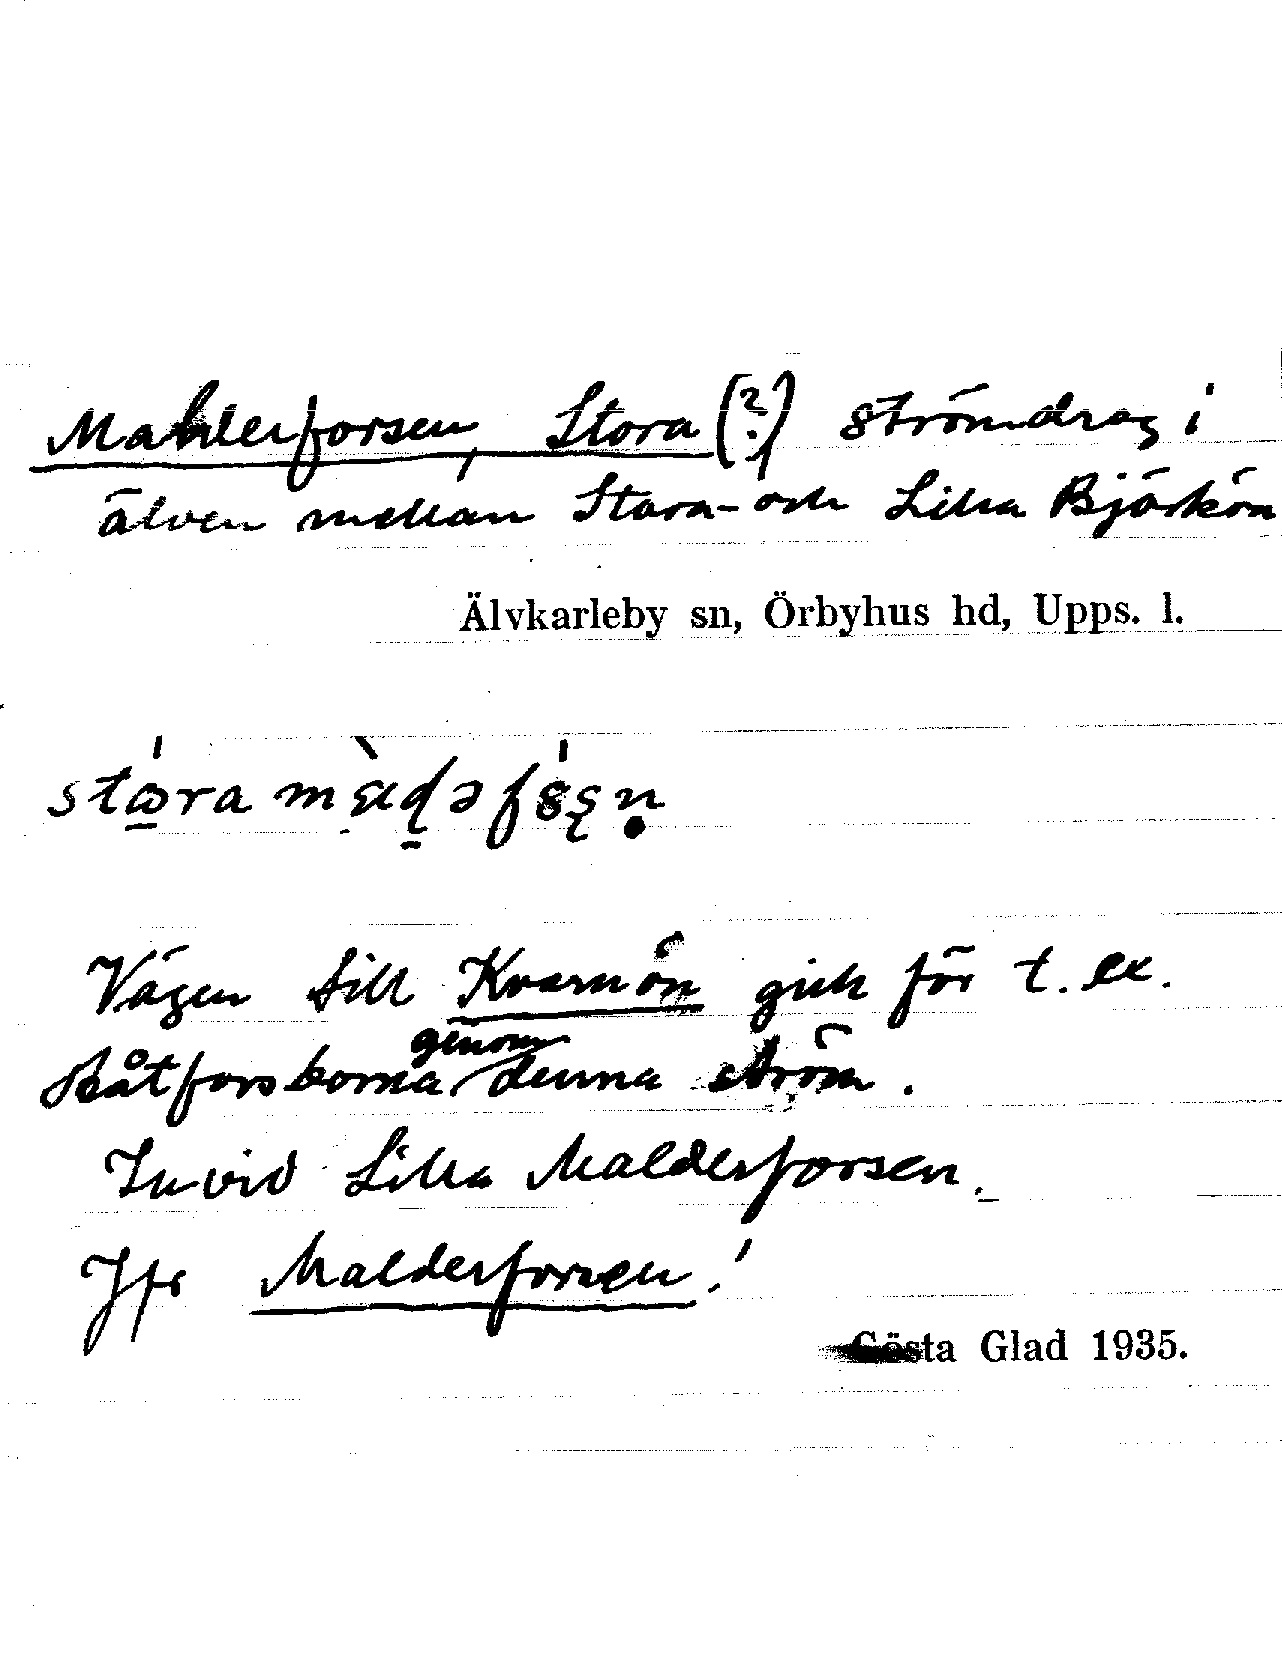 Mahlerforsen, Stora (?) strömdrag i
älven mellan Stora- och Lilla Björkön
Älvkarleby sn, Örbyhus hd, Upps. l.
stora
Vägen till Kvarnön gick för t. ex.
Båtforsborna genom denna ström.
Invid Lilla Malderforsen.
Jfr Malderforsen!
Gösta Glad 1935.